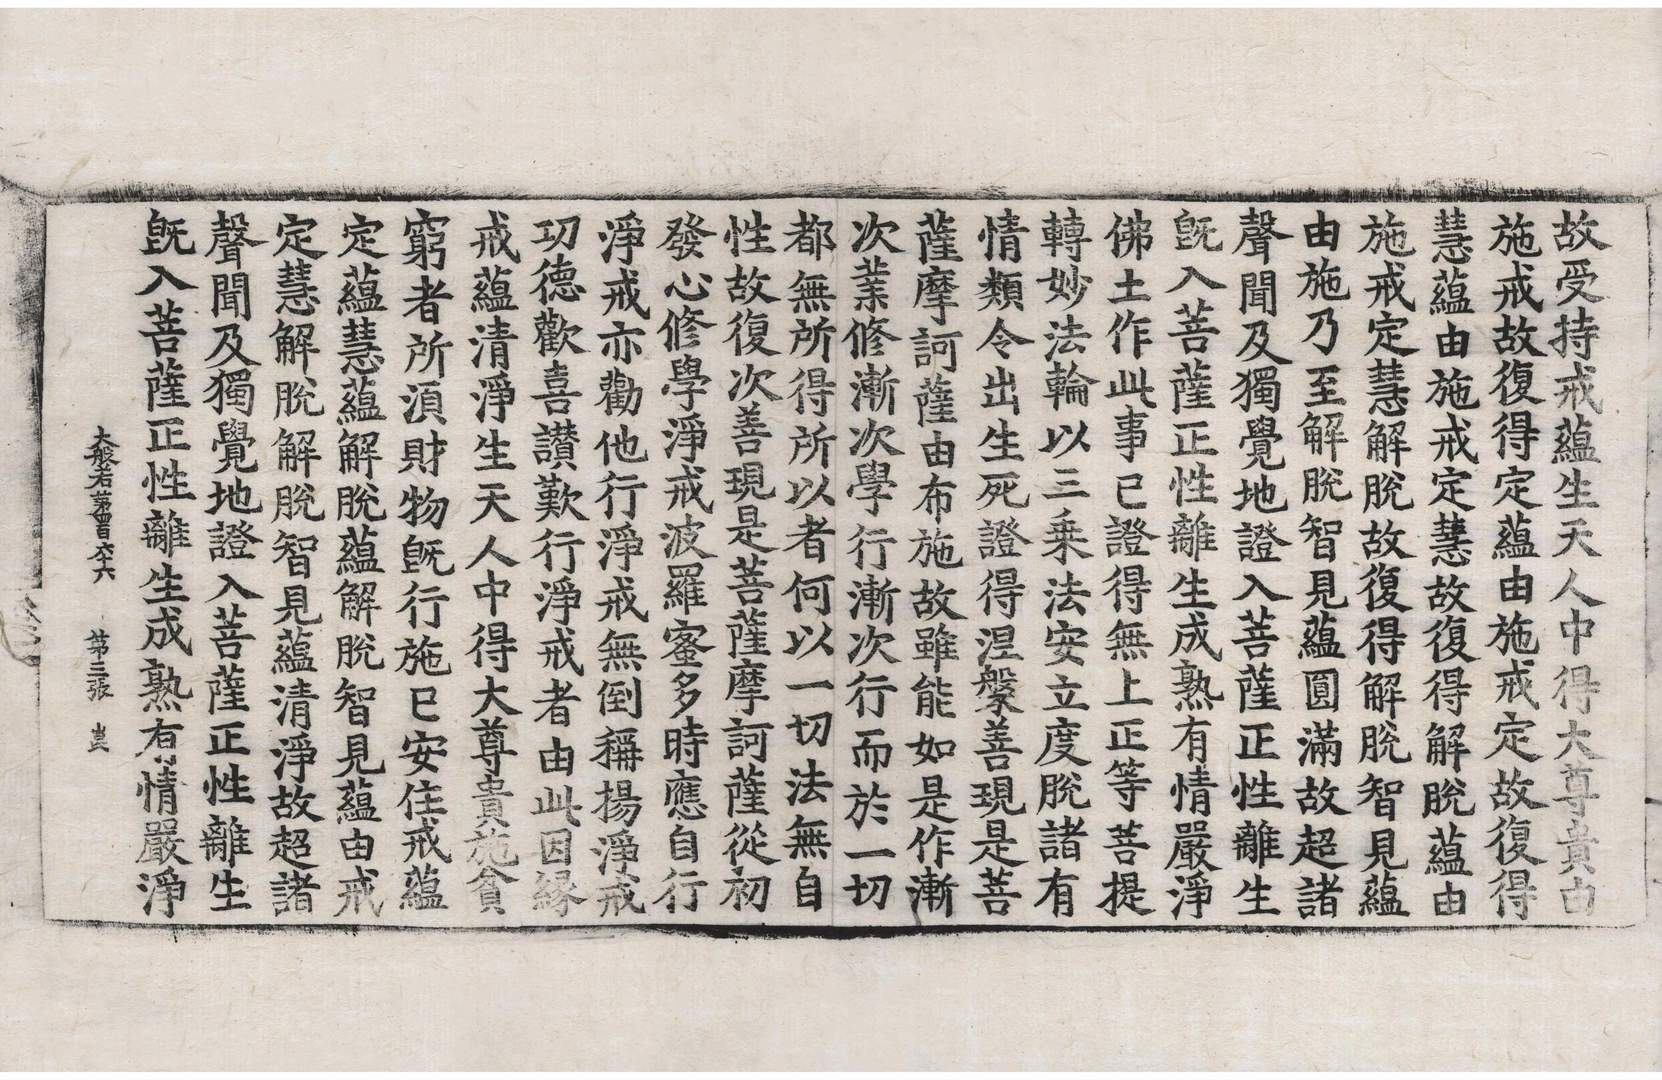 故受持戒蘊生天人中得大尊貴由
施戒故復得定蘊由施戒定故復得
慧蘊由施戒定慧故復得解脫蘊由
施戒定慧解脫故復得解脫智見蘊
由施乃至解脫智見蘊圓滿故超諸
聲聞及獨覺地證入菩薩正性離生
旣入菩薩正性離生成熟有情嚴淨
佛土作此事已證得無上正等菩提
轉妙法輪以三乘法安立度脫諸有
情類令出生死證得涅槃善現是菩
薩摩訶薩由布施故雖能如是作漸
次業修漸次學行漸次行而於一切
都無所得所以者何以一切法無自
性故復次善現是菩薩摩訶薩從初
發心修學淨戒波羅蜜多時應自行
淨戒亦勸他行淨戒無倒稱揚淨戒
功德歡喜讃歎行淨戒者由此因緣
戒蘊清淨生天人中得大尊貴施貧
窮者所湏財物旣行施已安住戒蘊
定蘊慧蘊解脫蘊解脫智見蘊由戒
定慧解脫解脫智見蘊清淨故超諸
聲聞及獨覺地證入菩薩正性離生
旣入菩薩正性離生成熟有情嚴淨
大般若第四百六十六 第三張